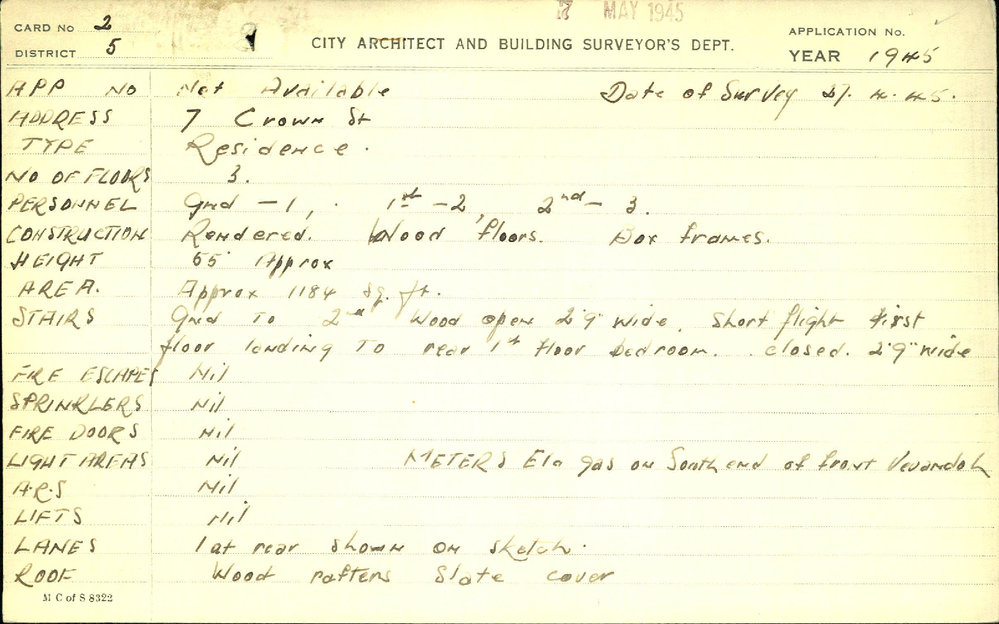 7 MAY 1945
CARD No 2
DISTRICT 5
CITY ARCHITECT AND BUILDING SURVEYOR'S DEPT.
APPLICATION No.
YEAR 1945
APP NO Not Available Date of Survey 4.45.
ADDRESS 7 Crown St
TYPE Residence.
NO OF FLOORS 3.
PERSONNEL Gnd - 1, 1st - 2, 2nd - 3.
CONSTRUCTION Rendered. Wood floors. Box frames.
HEIGHT Approx
AREA. Approx 1184 sq. ft.
STAIRS Gnd To 2nd Wood open 2'9" wide. Short flight first
floor landing To rear 1st floor bedroom. closed. 2'9" wide
FIRE ESCAPES Nil
SPRINKLERS Nil
FIRE DOORS Nil
LIGHT AREAS Nil METERS Ele gas on South end of front Verandah
A.R.S Nil
LIFTS Nil
LANES 1 at rear shown on sketch.
ROOF Wood rafters Slate cover
M C of S 8322